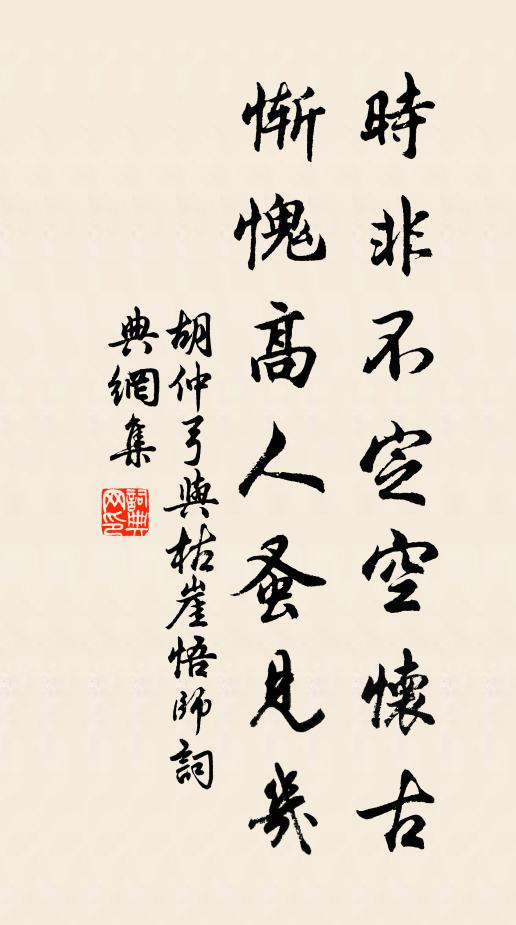 時非不定空懷古
慚愧高人蚤見幾
胡仲弓與枯崖悟師詞
典網集
詞典
网印